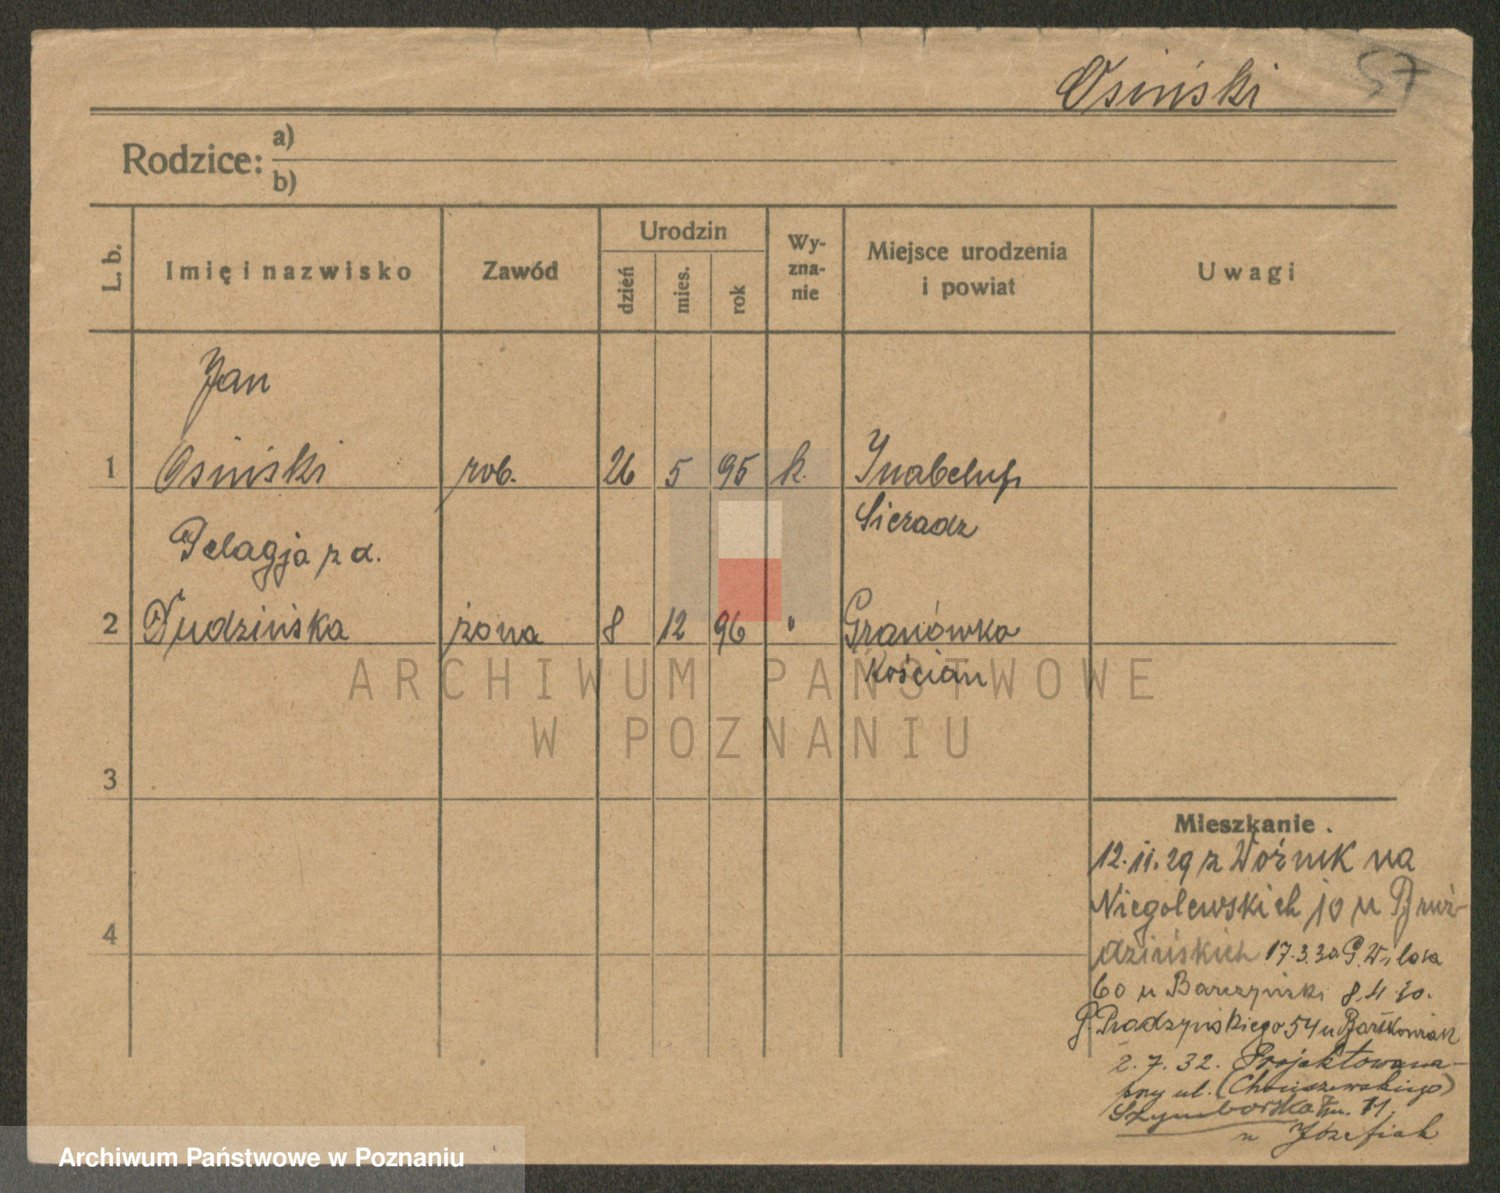 Osiński 57
Rodzice: a)
b)
L. b.
Imię i nazwisko
Zawód
Urodzin
dzień
mies.
rok
Wy-
zna-
nie
Miejsce urodzenia
i powiat
Uwagi
Jan
1 Osiński rob. 26 5 95 k.
Sieradz
Pelagja z d.
2 Dudzińska żona 8 12 96 " Granówko
Kościan
3
4
Mieszkanie.
12.11.29 z Woźnik na
Niegolewskich 10 u Bruź-
dzińskich 17.3.30 G. Wilda
60 u Barczyński 8.4.30.
G. Prądzyńskiego 54 u Bartkowiak
2.7.32. Projektowana
przy ul. (Chociszewskiego)
Szymborska 11
u Józefiak
ARCHIWUM PAŃSTWOWE
W POZNANIU
Archiwum Państwowe w Poznaniu